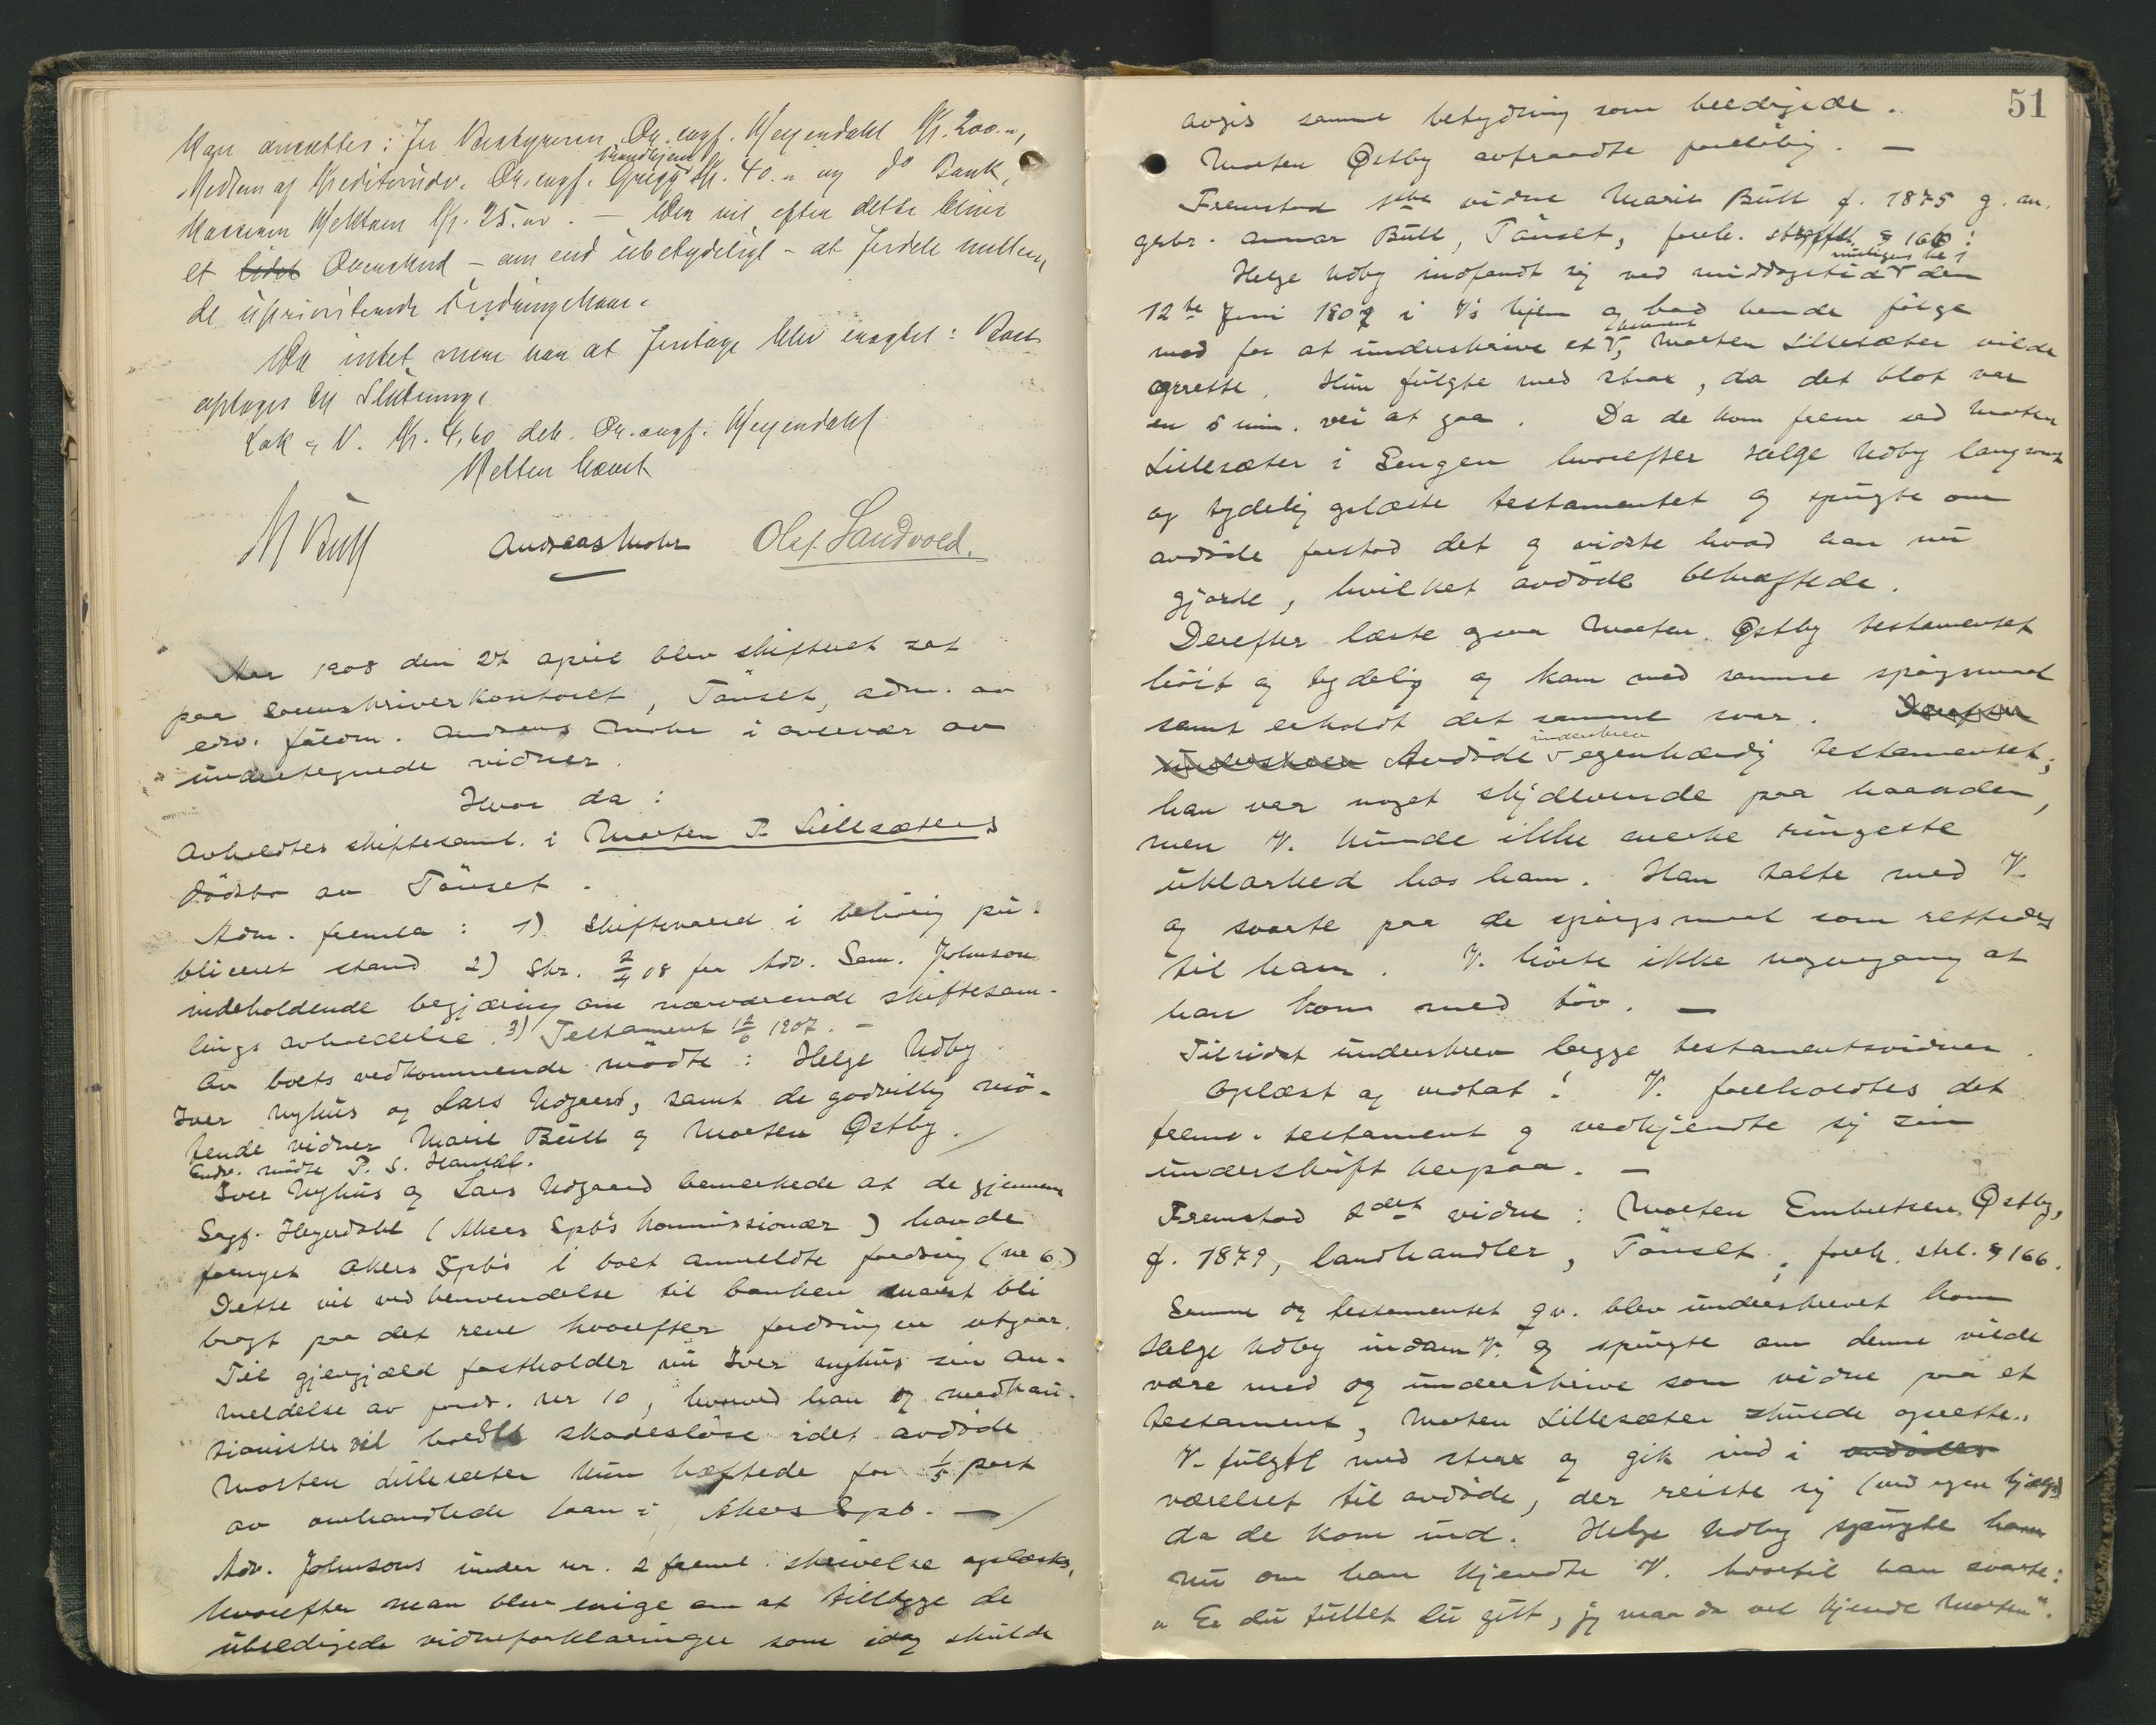 Man ansatte: for Bestyreren, Ov. sagf. Heyerdahl Kr. 200.-,
Medlem af Kreditorudv. Ov. sagf. Grøgg Kr. 40.- og do Bank,
Kr. 25.00. — Der vil efter dette blive
et lidet Overskud – om end ubetydeligt – at fordele mellem
de uprioriterede Fordringshave.
Da intet mere var at foretage blev enagtet: Boet
optages til Slutning.
Lok & V. Kr. 4,60 deb. Ov. sagf. Heyerdahl
Retten hævet
M Bull Andreas Mohr Olaf Sandvold.
Aar 1908 den 27 april blev skifteret sat
paa sorenskriverkontoret, Tönset, adm. av
edv. fuldm. Andreas Mohr i overvær av
undertegnede vidner.
Hvor da:
Avholdtes skiftesaml. i Morten P. Lillesæters
dödsbo av Tönset.
Adm. fremla: 1) Skiftevarsel i behörig pu-
bliceret stand 2) Skr. 2/4 08 fra Adv. Sam. Johnson
indeholdende begjæring om nærværende skiftesam-
lings avholdelse. 3) Testament 12/6 1907. –
Av boets vedkommende mödte: Helge Udby
Iver Nyhus og Lars Udgaard, samt de godvillig mö-
tende vidner Marit Bull og Morten Østby.
Endv. mödte P. S.
Iver Nyhus og Lars Udgaard bemerkede at de gjennem
Sagf. Heyerdahl (Akers Spb's kommissionær) havde
fornyet Akers Spb's i boet anmeldte fordring (nr 6)
Dette vil ved henvendelse til banken snarest bli
bragt paa det rene hvorefter fordringen utgaar.
Til gjengjæld fastholder nu Iver Nyhus sin an-
meldelse av fordr. nr 10, hvorved han og medkau-
tionister vil holdes skadeslöse idet avdöde
Morten Lillesæter kun hæftede for 1/5 part
av omhandlede laan i Akers Spb. —
Adv. Johnsons under nr. 2 freml. skrivelse oplæstes,
hvorefter man blev enige om at tillægge de
ubeedigede vidneforklaringer som idag skulde
51
avgis samme betydning som beedigede.
Morten Østby avtraadte foreløbig. —
Fremstod 1ste vidne Marit Bull f. 1875 g. m.
grbr. Annar Bull, Tönset, foreh. straffel. § 166:
Helge Udby indfandt sig ved middagstid den
12te Juni 1907 i V's hjem og bad hende fölge
med for at underskrive et testament, Morten Lillesæter vilde
oprette. Hun fulgte med strax, da det blot var
en 5 min. vei at gaa. Da de kom frem sad Morten
Lillesæter i Sengen hvorefter Helge Udby langsomt
og tydelig oplæste testamentet og spurgte om
avdöde forstod det og vidste hvad han nu
gjorde, hvilket avdöde bekræftede.
Derefter læste ogsaa Morten Østby testamentet
höit og tydelig og kom med samme spörgsmaal
samt erholdt det samme svar.
Avdöde underskrev egenhændig testamentet;
han var noget skjælvende paa haanden,
men V. kunde ikke merke ringeste
uklarhed hos ham. Han talte med V.
og svarte paa de spörgsmaal som rettedes
til ham. V. hörte ikke nogengang at
han kom med töv. —
Tilsidst underskrev begge testamentsvidner.
Oplæst og vedtat! V. foreholdtes det
freml. testament og vedkjendte sig sin
underskrift herpaa. —
Fremstod 2det vidne: Morten Embretsen Østby,
f. 1879, landhandler, Tönset; foreh. strl. § 166.
Samme dag testamentet blev underskrevet kom
Helge Udby ind til V. og spurgte om denne vilde
være med og underskrive som vidne paa et
testament, Morten Lillesæter skulde oprette.
V. fulgte med strax og gik ind i avdödes
værelset til avdöde, der reiste sig (ved egen hjælp)
da de kom ind. Helge Udby spurgte ham
nu om han kjendte V. hvortil han svarte:
" Er du tullet du gut, jeg maa da vel kjende Morten".